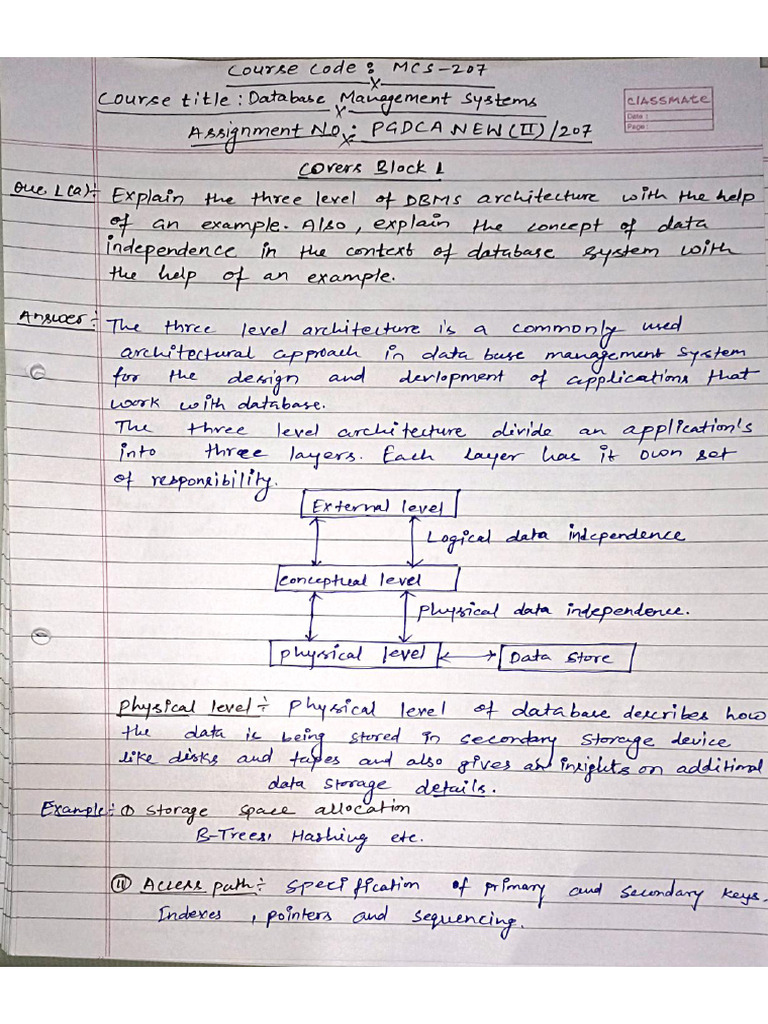 Course Code : MCS-207
Course title : Database Management Systems
CLASSMATE
Date :
Page :
Assignment No. : PGDCA NEW (II) / 207
Covers Block 1
Que. 1.(a) :- Explain the three level of DBMS architecture with the help
of an example. Also, explain the concept of data
independence in the context of database system with
the help of an example.
Answer :- The three level architecture is a commonly used
architectural approach in data base management system
for the design and devlopment of applications that
work with database.
The three level architecture divide an application's
into three layers. Each layer has it own set
of responsibility.
External level
Logical data independence
Conceptual level
Physical data independence.
Physical level
Data Store
Physical level :- Physical level of database describes how
the data is being stored in secondary storage device
like disks and tapes and also gives an insights on additional
data storage details.
Example :- (i) Storage space allocation
B-Trees, Hashing etc.
(ii) Access path :- Specification of primary and secondary keys.
Indexes, pointers and sequencing.